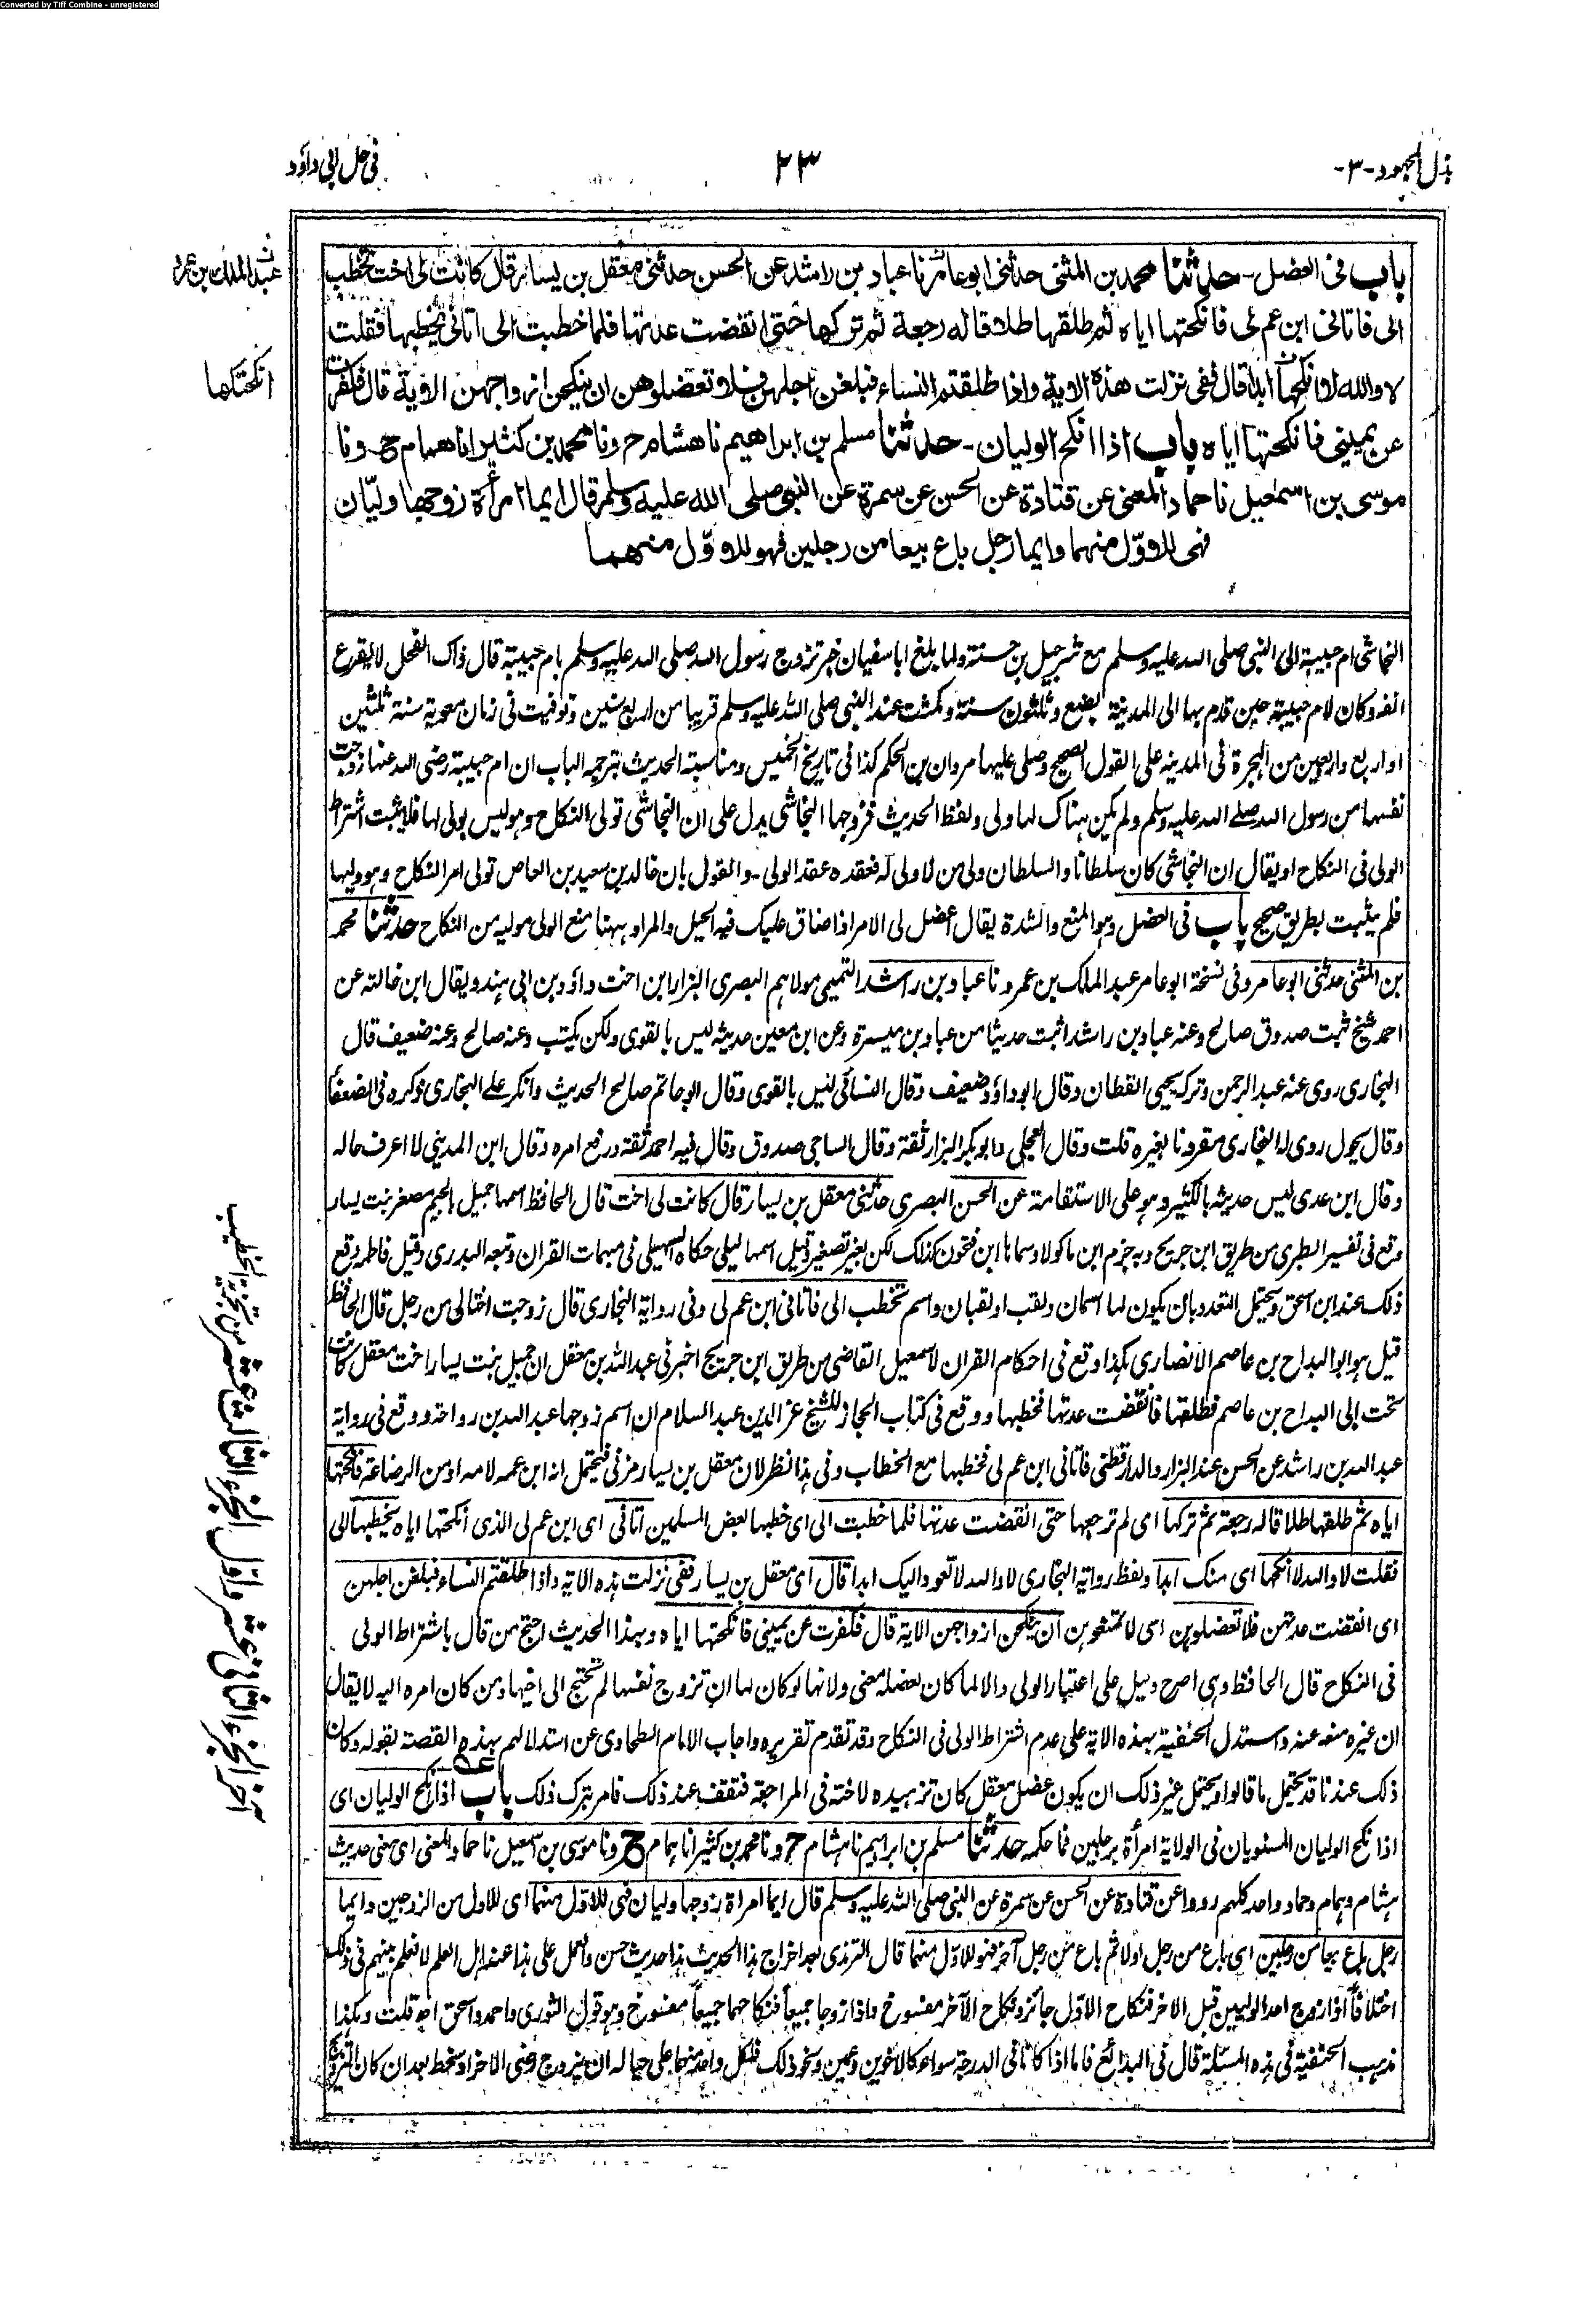 Converted by Tiff Combine - unregistered
بذل المجهود -٣-
٢٣
فى حل ابى داؤد
باب فى العضل - حدثنا محمد بن المثنى حدثنى ابو عامر نا عباد بن راشد عن الحسن حدثنى معقل بن يسار قال كانت لى اخت تخطب
الى فاتانى ابن عم لى فانكحتها اياه ثم طلقها طلاقا له رجعة ثم تركها حتى انقضت عدتها فلما خطبت الى اتانى يخطبها فقلت
لا والله لا انكحها ابدا قال ففى نزلت هذه الاية واذا طلقتم النساء فبلغن اجلهن فلا تعضلوهن ان ينكحن ازواجهن الاية قال فكفرت
عن يمينى فانكحتها اياه باب اذا انكح الوليان - حدثنا مسلم بن ابراهيم نا هشام ح ونا محمد بن كثير انا همام ح ونا
موسى بن اسمعيل نا حماد المعنى عن قتادة عن الحسن عن سمرة عن النبى صلى الله عليه وسلم قال ايما امرأة زوجها وليّان
فهى للاوّل منهما وايما رجل باع بيعا من رجلين فهو للاوّل منهما
عبد الملك بن عمرو
انكحتكها
النجاشى ام حبيبة الى النبى صلى الله عليه وسلم مع شرحبيل بن حسنة ولما بلغ ابا سفيان خبر تزوج رسول الله صلى الله عليه وسلم بام حبيبة قال ذاك الفحل لا يقرع
انفه وكان لام حبيبة حين قدم بها الى المدينة بضع وثلثون سنة ومكثت عند النبى صلى الله عليه وسلم قريبا من اربع سنين وتوفيت فى زمان معوية سنة ثلثين
او اربع واربعين من الهجرة فى المدينة على القول الصحيح وصلى عليها مروان بن الحكم كذا فى تاريخ الخميس ومناسبة الحديث بترجمة الباب ان ام حبيبة رضى الله عنها زوجت
نفسها من رسول الله صلى الله عليه وسلم ولم يكن هناك لها ولى ولفظ الحديث فزوجها النجاشى يدل على ان النجاشى تولى النكاح وهو ليس بولى لها فلا يثبت اشتراط
الولى فى النكاح او يقال ان النجاشى كان سلطانا والسلطان ولى من لا ولى له فعقده عقد الولى - والمقول بان خالد بن سعيد بن العاص تولى امر النكاح وهو وليها
فلم يثبت بطريق صحيح باب فى العضل وهو المنع والشدة يقال اعضل لى الامر اذا ضاق عليك فيه الحيل والمراد ههنا منع الولى موليه من النكاح حدثنا محمد
بن المثنى حدثنى ابو عامر وفى نسخة ابو عامر عبد الملك بن عمرو نا عباد بن راشد التميمى مولاهم البصرى البزار ابن اخت داؤد بن ابى هند ويقال ابن خالته عن
احمد شيخ ثبت صدوق صالح وعنه عباد بن راشد اثبت حديثا من عباد بن ميسرة وعن ابن معين حديثه ليس بالقوى ولكن يكتب وعنه صالح وعنه ضعيف قال
البخارى روى عنه عبد الرحمن وتركه يحيى القطان وقال ابو داؤد ضعيف وقال النسائى ليس بالقوى وقال ابو حاتم صالح الحديث وانكر على البخارى ذكره فى الضعفاء
وقال يحول روى له البخارى مقرونا بغيره قلت وقال العجلى وابو بكر البزار ثقة وقال الساجى صدوق وقال فيه احمد ثقة ورفع امره وقال ابن المدينى لا اعرف حاله
وقال ابن عدى ليس حديثه بالكثير وهو على الاستقامة عن الحسن البصرى حدثنى معقل بن يسار قال كانت لى اخت قال الحافظ اسمها جميل بالجيم مصغر بنت يسار
وقع فى تفسير الطبرى من طريق ابن جريج وبه جزم ابن ماكولا وسماها ابن فتحون كذلك لكن بغير تصغير وقيل اسمها ليلى حكاه السهيلى فى مبهمات القران وتبعه البدرى وقيل فاطمة وقع
ذلك عند ابن اسحق ويحتمل التعدد بان يكون لها اسمان ولقب او لقبان واسم تخطب الى فاتانى ابن عم لى وفى رواية البخارى قال زوجت اختا لى من رجل قال الحافظ
قيل هو ابو البداح بن عاصم الانصارى هكذا وقع فى احكام القران لاسمعيل القاضى من طريق ابن جريج اخبرنى عبد الله بن معقل ان جميل بنت يسار اخت معقل كانت
تحت ابى البداح بن عاصم فطلقها فانقضت عدتها فخطبها ووقع فى كتاب المجاز للشيخ عز الدين عبد السلام ان اسم زوجها عبد الله بن رواحة ووقع فى رواية
عبد الله بن راشد عن الحسن عند البزار والدارقطنى فاتانى ابن عم لى فخطبها مع الخطاب وفى هذا نظر لان معقل بن يسار مزنى فيحتمل انه ابن عمه لامه او من الرضاعة فانكحتها
اياه ثم طلقها طلاقا له رجعة ثم تركها اى لم ترجعها حتى انقضت عدتها فلما خطبت الى اى خطبها بعض المسلمين اتانى اى ابن عم لى الذى انكحتها اياه يخطبها الى
فقلت لا والله لا انكحها اى منك ابدا ولفظ رواية البخارى لا والله لا تعود اليك ابدا قال اى معقل بن يسار ففى نزلت هذه الاية واذا طلقتم النساء فبلغن اجلهن
اى انقضت عدتهن فلا تعضلوهن اى لا تمنعوهن ان ينكحن ازواجهن الاية قال فكفرت عن يمينى فانكحتها اياه وبهذا الحديث احتج من قال باشتراط الولى
فى النكاح قال الحافظ وهى اصرح دليل على اعتبار الولى والا لما كان لعضله معنى ولانها لو كان لها ان تزوج نفسها لم تحتج الى اخيها ومن كان امره اليه لا يقال
ان غيره منعه عنه واستدل الحنفية بهذه الاية على عدم اشتراط الولى فى النكاح وقد تقدم تقريره واجاب الامام الطحاوى عن استدلالهم بهذه القصة بقوله وكان
ذلك عندنا قد يحتمل ما قالوا ويحتمل غير ذلك ان يكون عضل معقل كان تزهيده لاخته فى المراجعة فتقف عند ذلك فامر بترك ذلك باب اذا نكح الوليان اى
اذا نكح الوليان المستويان فى الولاية امرأة برجلين فما حكمه حدثنا مسلم بن ابراهيم نا هشام ح ونا محمد بن كثير انا همام ح ونا موسى بن اسمعيل نا حماد المعنى اى معنى حديث
هشام وهمام وحماد واحد كلهم رووا عن قتادة عن الحسن عن سمرة عن النبى صلى الله عليه وسلم قال ايما امراة زوجها وليان فهى للاول منهما اى للاول من الزوجين وايما
رجل باع بيعا من رجلين اى باع من رجل اولا ثم باع من رجل آخر فهو للاوّل منهما قال الترمذى بعد اخراج هذا الحديث هذا حديث حسن والعمل على هذا عند اهل العلم لا نعلم بينهم فى ذلك
اختلافاً اذا زوج احد الوليين قبل الاخر فنكاح الاوّل جائز ونكاح الآخر مفسوخ واذا زوجا جميعاً فنكاحهما جميعاً مفسوخ وهو قول الثورى واحمد واسحق اھ قلت وهكذا
مذهب الحنفية فى هذه المسئلة قال فى البدائع فاما اذا كانا فى الدرجة سواء كالاخوين وعمين ونحو ذلك فلكل واحد منهما على حياله ان يزوج رضى الاخر او سخط بعد ان كان التزويج
عه اخر الجزء الثانى عشر واول الجزء الثالث عشر من تجزية الخطيب